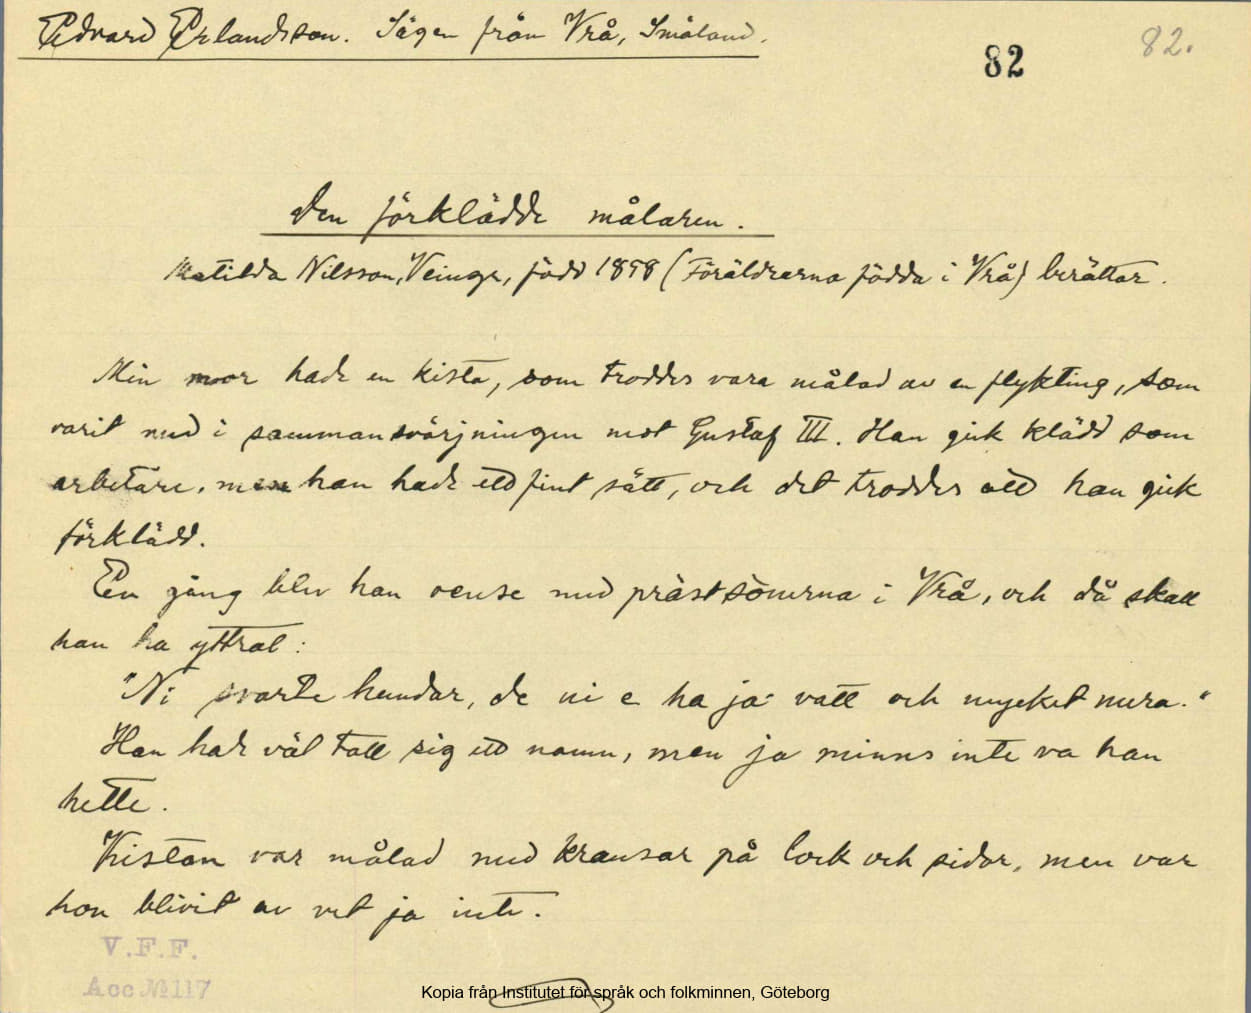 Edvard Erlandsson. Sägen från Vrå, Småland.
82
82.
Den förklädde målaren.
Matilda Nilsson, Veinge, född 1858 (Föräldrarna födda i Vrå) berättar.
Min mor hade en kista, som troddes vara målad av en flykting, som
varit med i sammansvärjningen mot Gustaf III. Han gick klädd som
arbetare, men han hade ett fint sätt, och det troddes att han gick
förklädd.
En gång blev han oense med prästsönerna i Vrå, och då skall
han ha yttrat:
"Ni svarte hundar, de ni e ha ja vatt och mycket mera."
Han hade väl tatt sig ett namn, men ja minns inte va han
hette.
Kistan var målad med kransar på lock och sidor, men var
hon blivit av vet ja inte.
V.F.F.
Acc № 117
Kopia från Institutet för språk och folkminnen, Göteborg